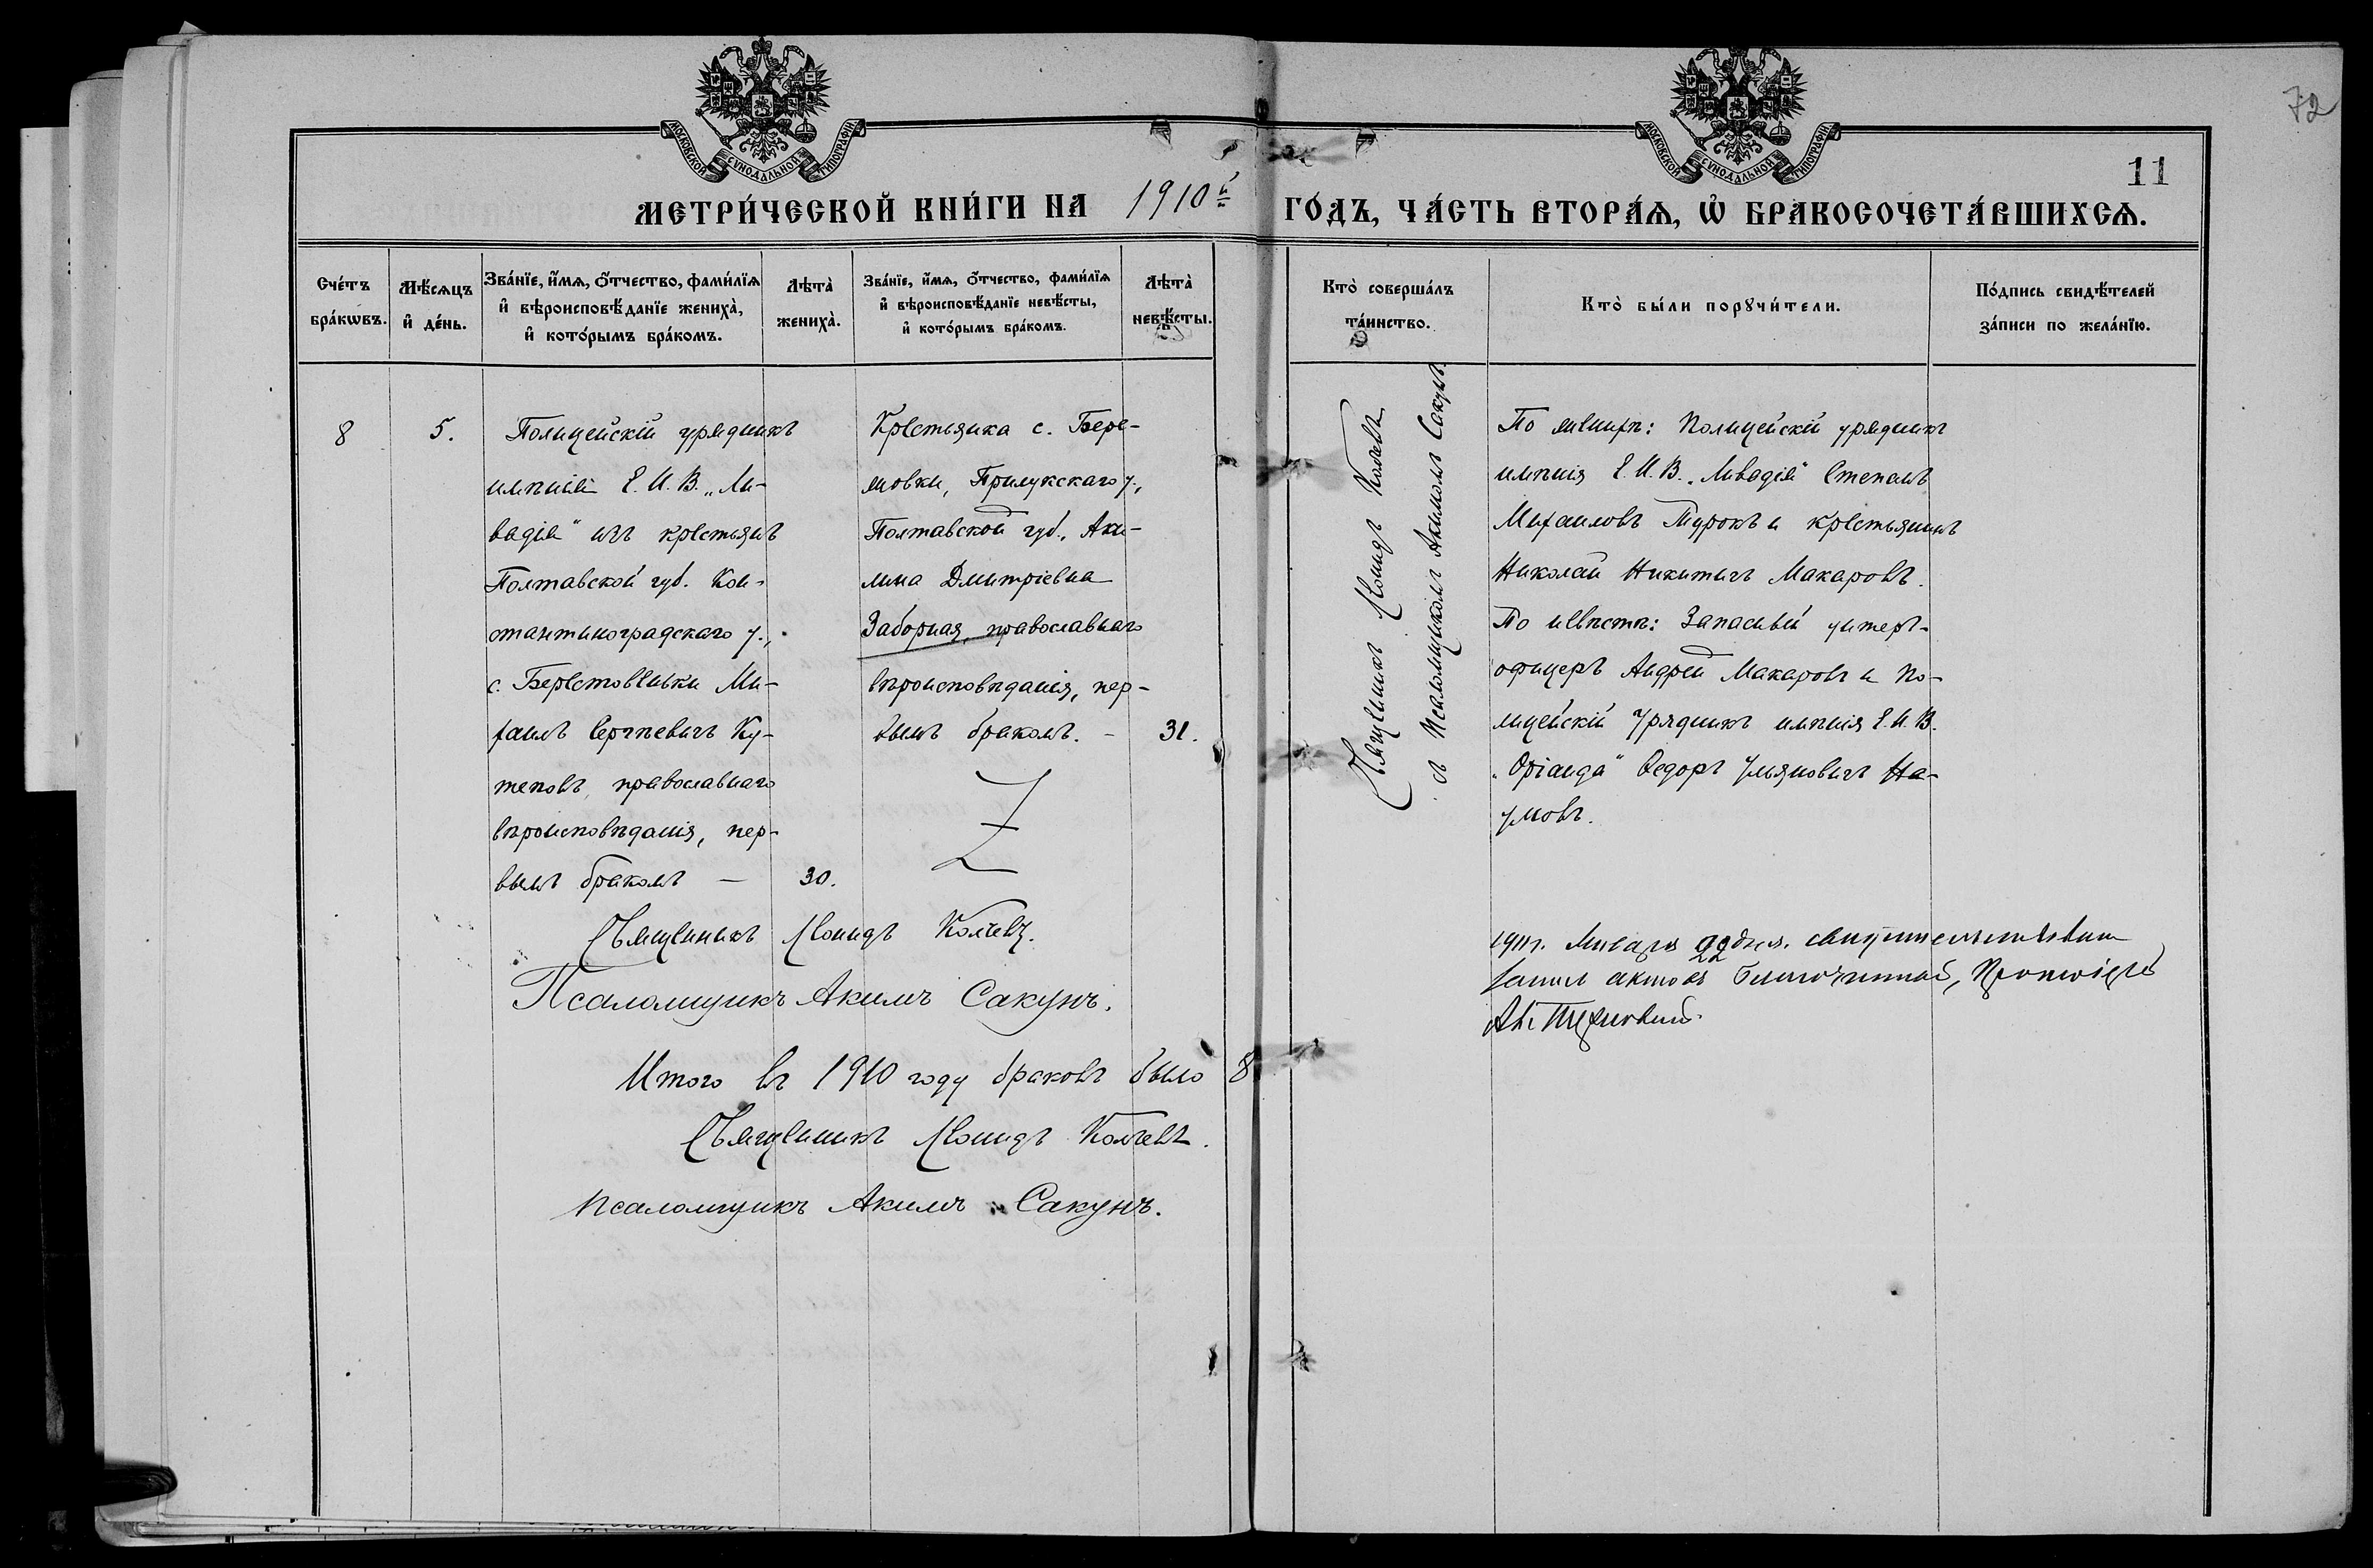 72
11
МОСКОВСКОЙ СѴНОДАЛЬНОЙ ТИПОГРАФІИ
МОСКОВСКОЙ СѴНОДАЛЬНОЙ ТИПОГРАФІИ
МЕТРИ́ЧЕСКОЙ КНИ́ГИ НА 1910й ГО́ДЪ, ЧА́СТЬ ВТОРА́Ѧ, Ѡ҆ БРАКОСОЧЕТА́ВШИХСѦ.
Сче́тъ
бра́кѡвъ.
Мѣ́сѧцъ
и҆ де́нь.
Зва́нїе, и҆́мѧ, ѻ҆́тчество, фами́лїѧ
и҆ вѣроисповѣ́данїе жениха̀,
и҆ кото́рымъ бра́комъ.
Лѣта̀
жениха̀.
Зва́нїе, и҆́мѧ, ѻ҆́тчество, фами́лїѧ
и҆ вѣроисповѣ́данїе невѣ́сты,
и҆ кото́рымъ бра́комъ.
Лѣта̀
невѣ́сты.
Кто̀ соверша́лъ
та́инство.
Кто̀ бы́ли порꙋчи́тели.
По́дпись свидѣ́телей
за́писи по жела́нїю.
8
5.
Полицейскій урядникъ
имѣнія Е. И. В. „Ли-
вадія“ изъ крестьянъ
Полтавской губ. Кон-
стантиноградскаго у.,
с. Берестовеньки Ми-
хаилъ Сергѣевичъ Ку-
теповъ, православнаго
вѣроисповѣданія, пер-
вымъ бракомъ —
30.
Крестьянка с. Бере-
зовки, Прилукскаго у.,
Полтавской губ., Аку-
лина Дмитріевна
Заборная, православнаго
вѣроисповѣданія, пер-
вымъ бракомъ. –
31.
Священникъ Леонидъ Колчевъ
съ Псаломщикомъ Акимомъ Сакунъ.
По женихѣ: Полицейскій урядникъ
имѣнія Е. И. В. „Ливадія“ Степанъ
Михаиловъ Турокъ и крестьянинъ
Николай Никитичъ Макаровъ.
По невѣстѣ: Запасный унтеръ-
офицеръ Андрей Макаровъ и По-
лицейскій Урядникъ имѣнія Е. И. В.
„Оріанда“ Ѳедоръ Ульяновичъ На-
умовъ.
Священникъ Леонидъ Колчевъ.
Псаломщикъ Акимъ Сакунъ.
Итого въ 1910 году браковъ было 8
Священникъ Леонидъ Колчевъ.
Псаломщикъ Акимъ Сакунъ.
1911г. Января 22 дня.
актовъ Благочинный, Протоіерей